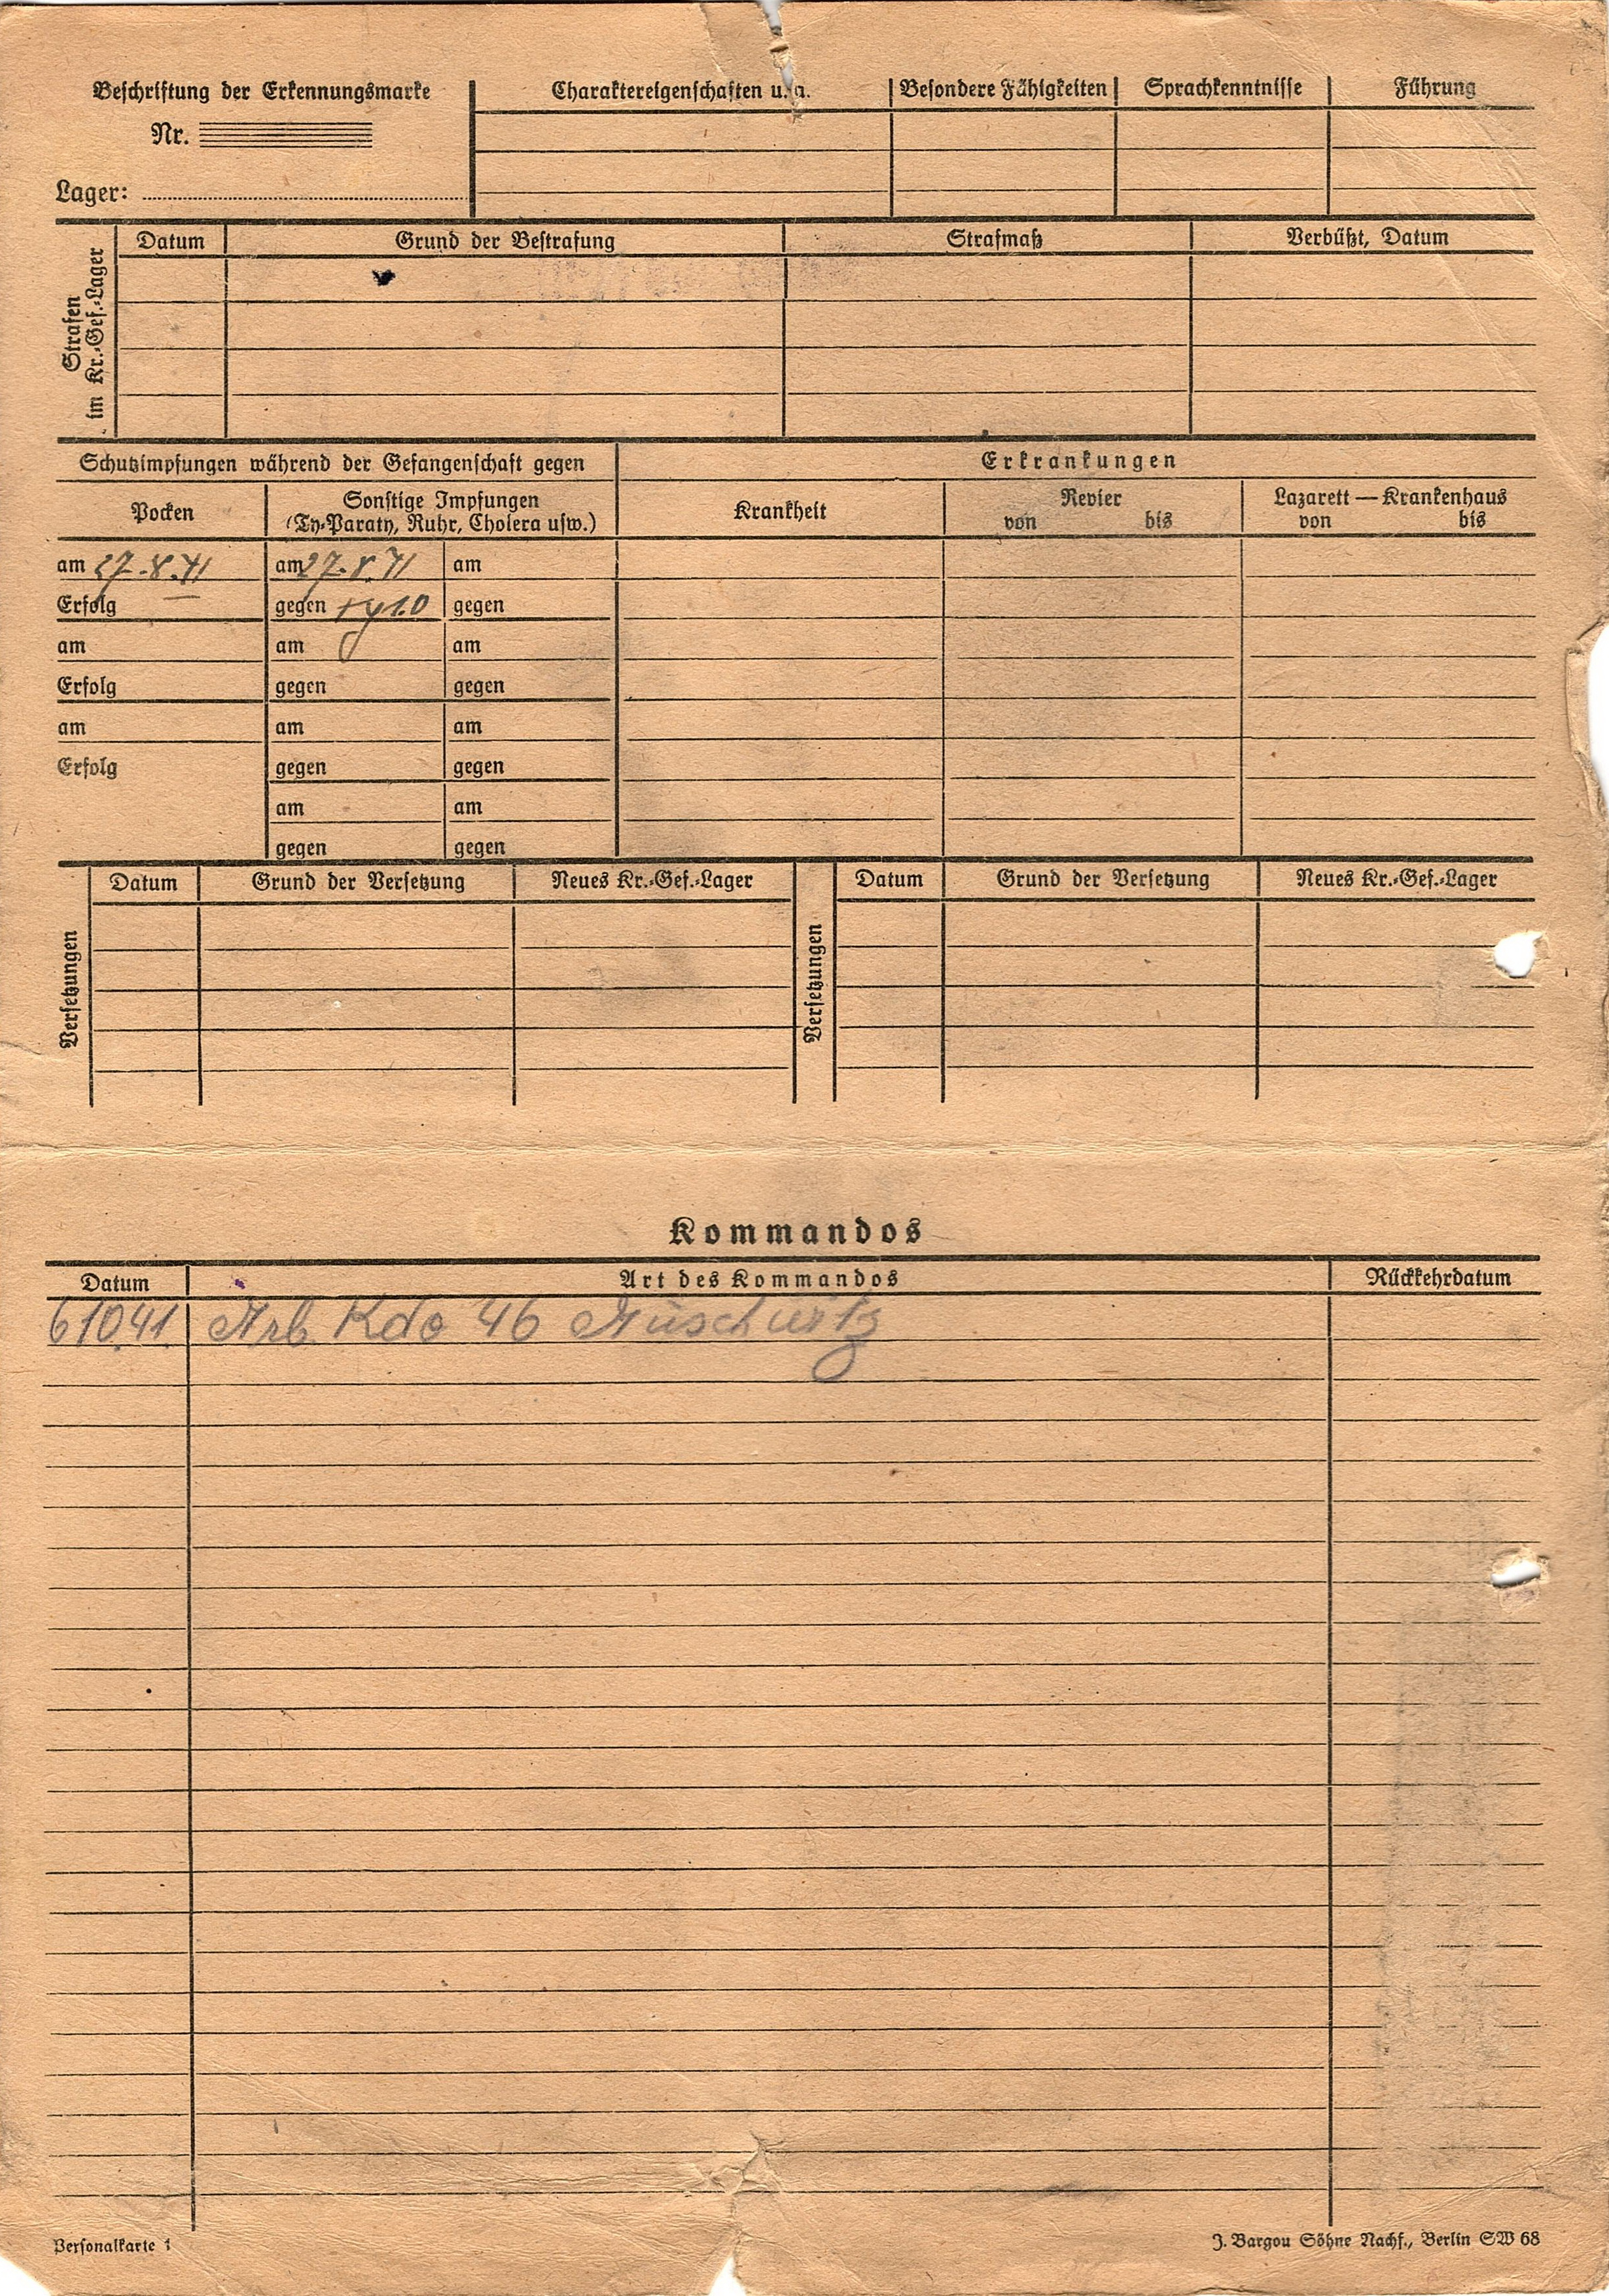 Beschriftung der Erkennungsmarke
Nr.
Lager:
Charaktereigenschaften u. a.
Besondere Fähigkeiten
Sprachkenntnisse
Führung
Strafen
im Kr.-Gef.-Lager
Datum
Grund der Bestrafung
Strafmaß
Verbüßt, Datum
Schutzimpfungen während der Gefangenschaft gegen
Erkrankungen
Pocken
Sonstige Impfungen
(Ty-Paraty, Ruhr, Cholera usw.)
Krankheit
Revier
von bis
Lazarett — Krankenhaus
von bis
am 27.8.41 am 27.8.41 am
Erfolg gegen gegen
am am am
Erfolg gegen gegen
am am am
Erfolg gegen gegen
am am
gegen gegen
Versetzungen
Datum Grund der Versetzung Neues Kr.-Gef.-Lager
Versetzungen
Datum Grund der Versetzung Neues Kr.-Gef.-Lager
Kommandos
Datum Art des Kommandos Rückkehrdatum
6.10.41. Arb. Kdo 46 Auschwitz
Personalkarte 1
J. Bargou Söhne Nachf., Berlin SW 68